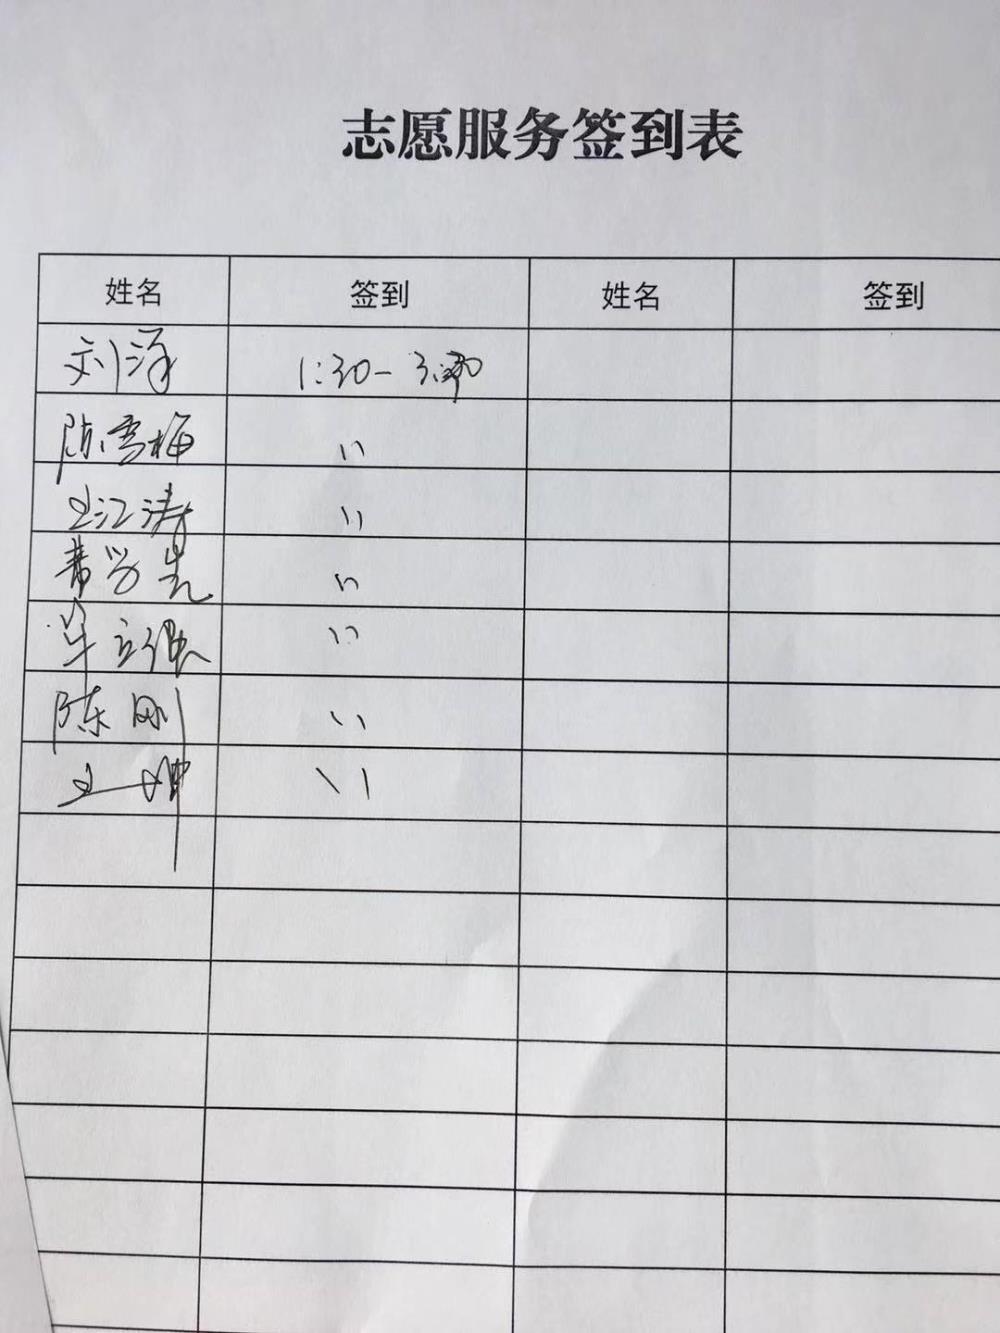 志愿服务签到表
姓名 签到 姓名 签到
刘泽 1:30-3:30
陈雪梅 ''
王江涛 ''
''
立强 ''
陈刚 ''
王坤 ''